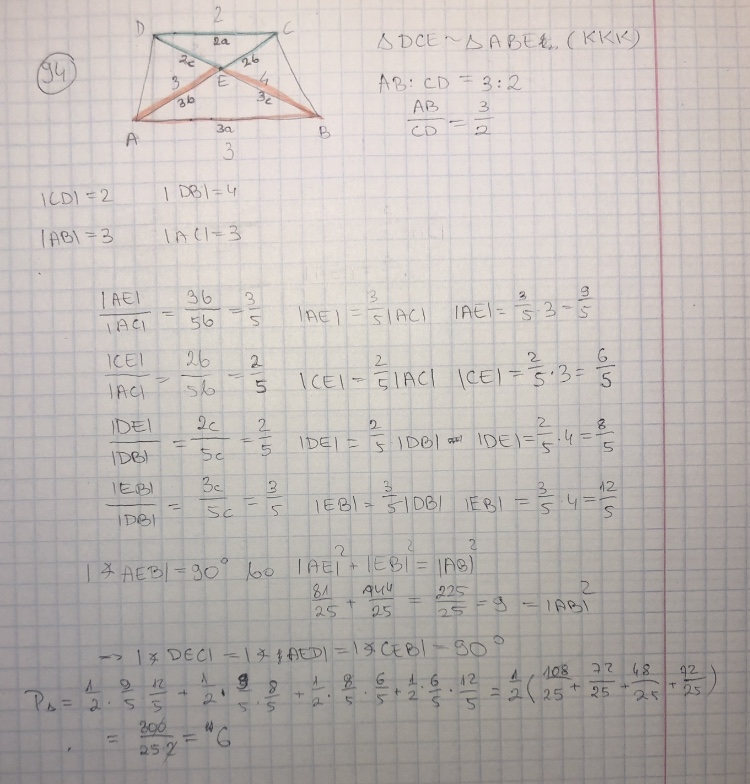 94
D 2 C
2a
2c 2b
3 E 4
3b 3c
A 3a B
3
△DCE ~ △ABE (KKK)
AB : CD = 3 : 2
AB/CD = 3/2
|CD| = 2 |DB| = 4
|AB| = 3 |AC| = 3
|AE|/|AC| = 3b/5b = 3/5 |AE| = 3/5 |AC| |AE| = 3/5 · 3 = 9/5
|CE|/|AC| = 2b/5b = 2/5 |CE| = 2/5 |AC| |CE| = 2/5 · 3 = 6/5
|DE|/|DB| = 2c/5c = 2/5 |DE| = 2/5 |DB| |DE| = 2/5 · 4 = 8/5
|EB|/|DB| = 3c/5c = 3/5 |EB| = 3/5 |DB| |EB| = 3/5 · 4 = 12/5
|∡AEB| = 90° bo |AE|² + |EB|² = |AB|²
81/25 + 144/25 = 225/25 = 9 = |AB|²
→ |∡DEC| = |∡AED| = |∡CEB| = 90°
P = 1/2 · 9/5 · 12/5 + 1/2 · 9/5 · 8/5 + 1/2 · 8/5 · 6/5 + 1/2 · 6/5 · 12/5 = 1/2 (108/25 + 72/25 + 48/25 + 72/25)
= 300/25·2 = 6